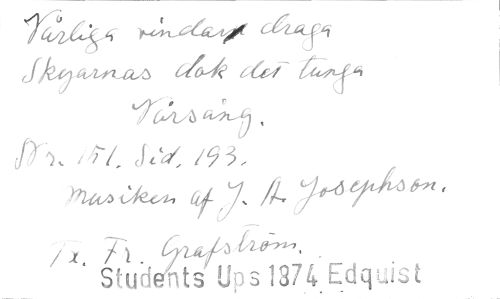 Vårliga vindar draga
Skyarnas dok det tunga
Vårsång.
Nr. 151. Sid. 193.
Musiken af J. A. Josephson.
Tx. Fr. Grafström.
Students Ups 1874 Edquist